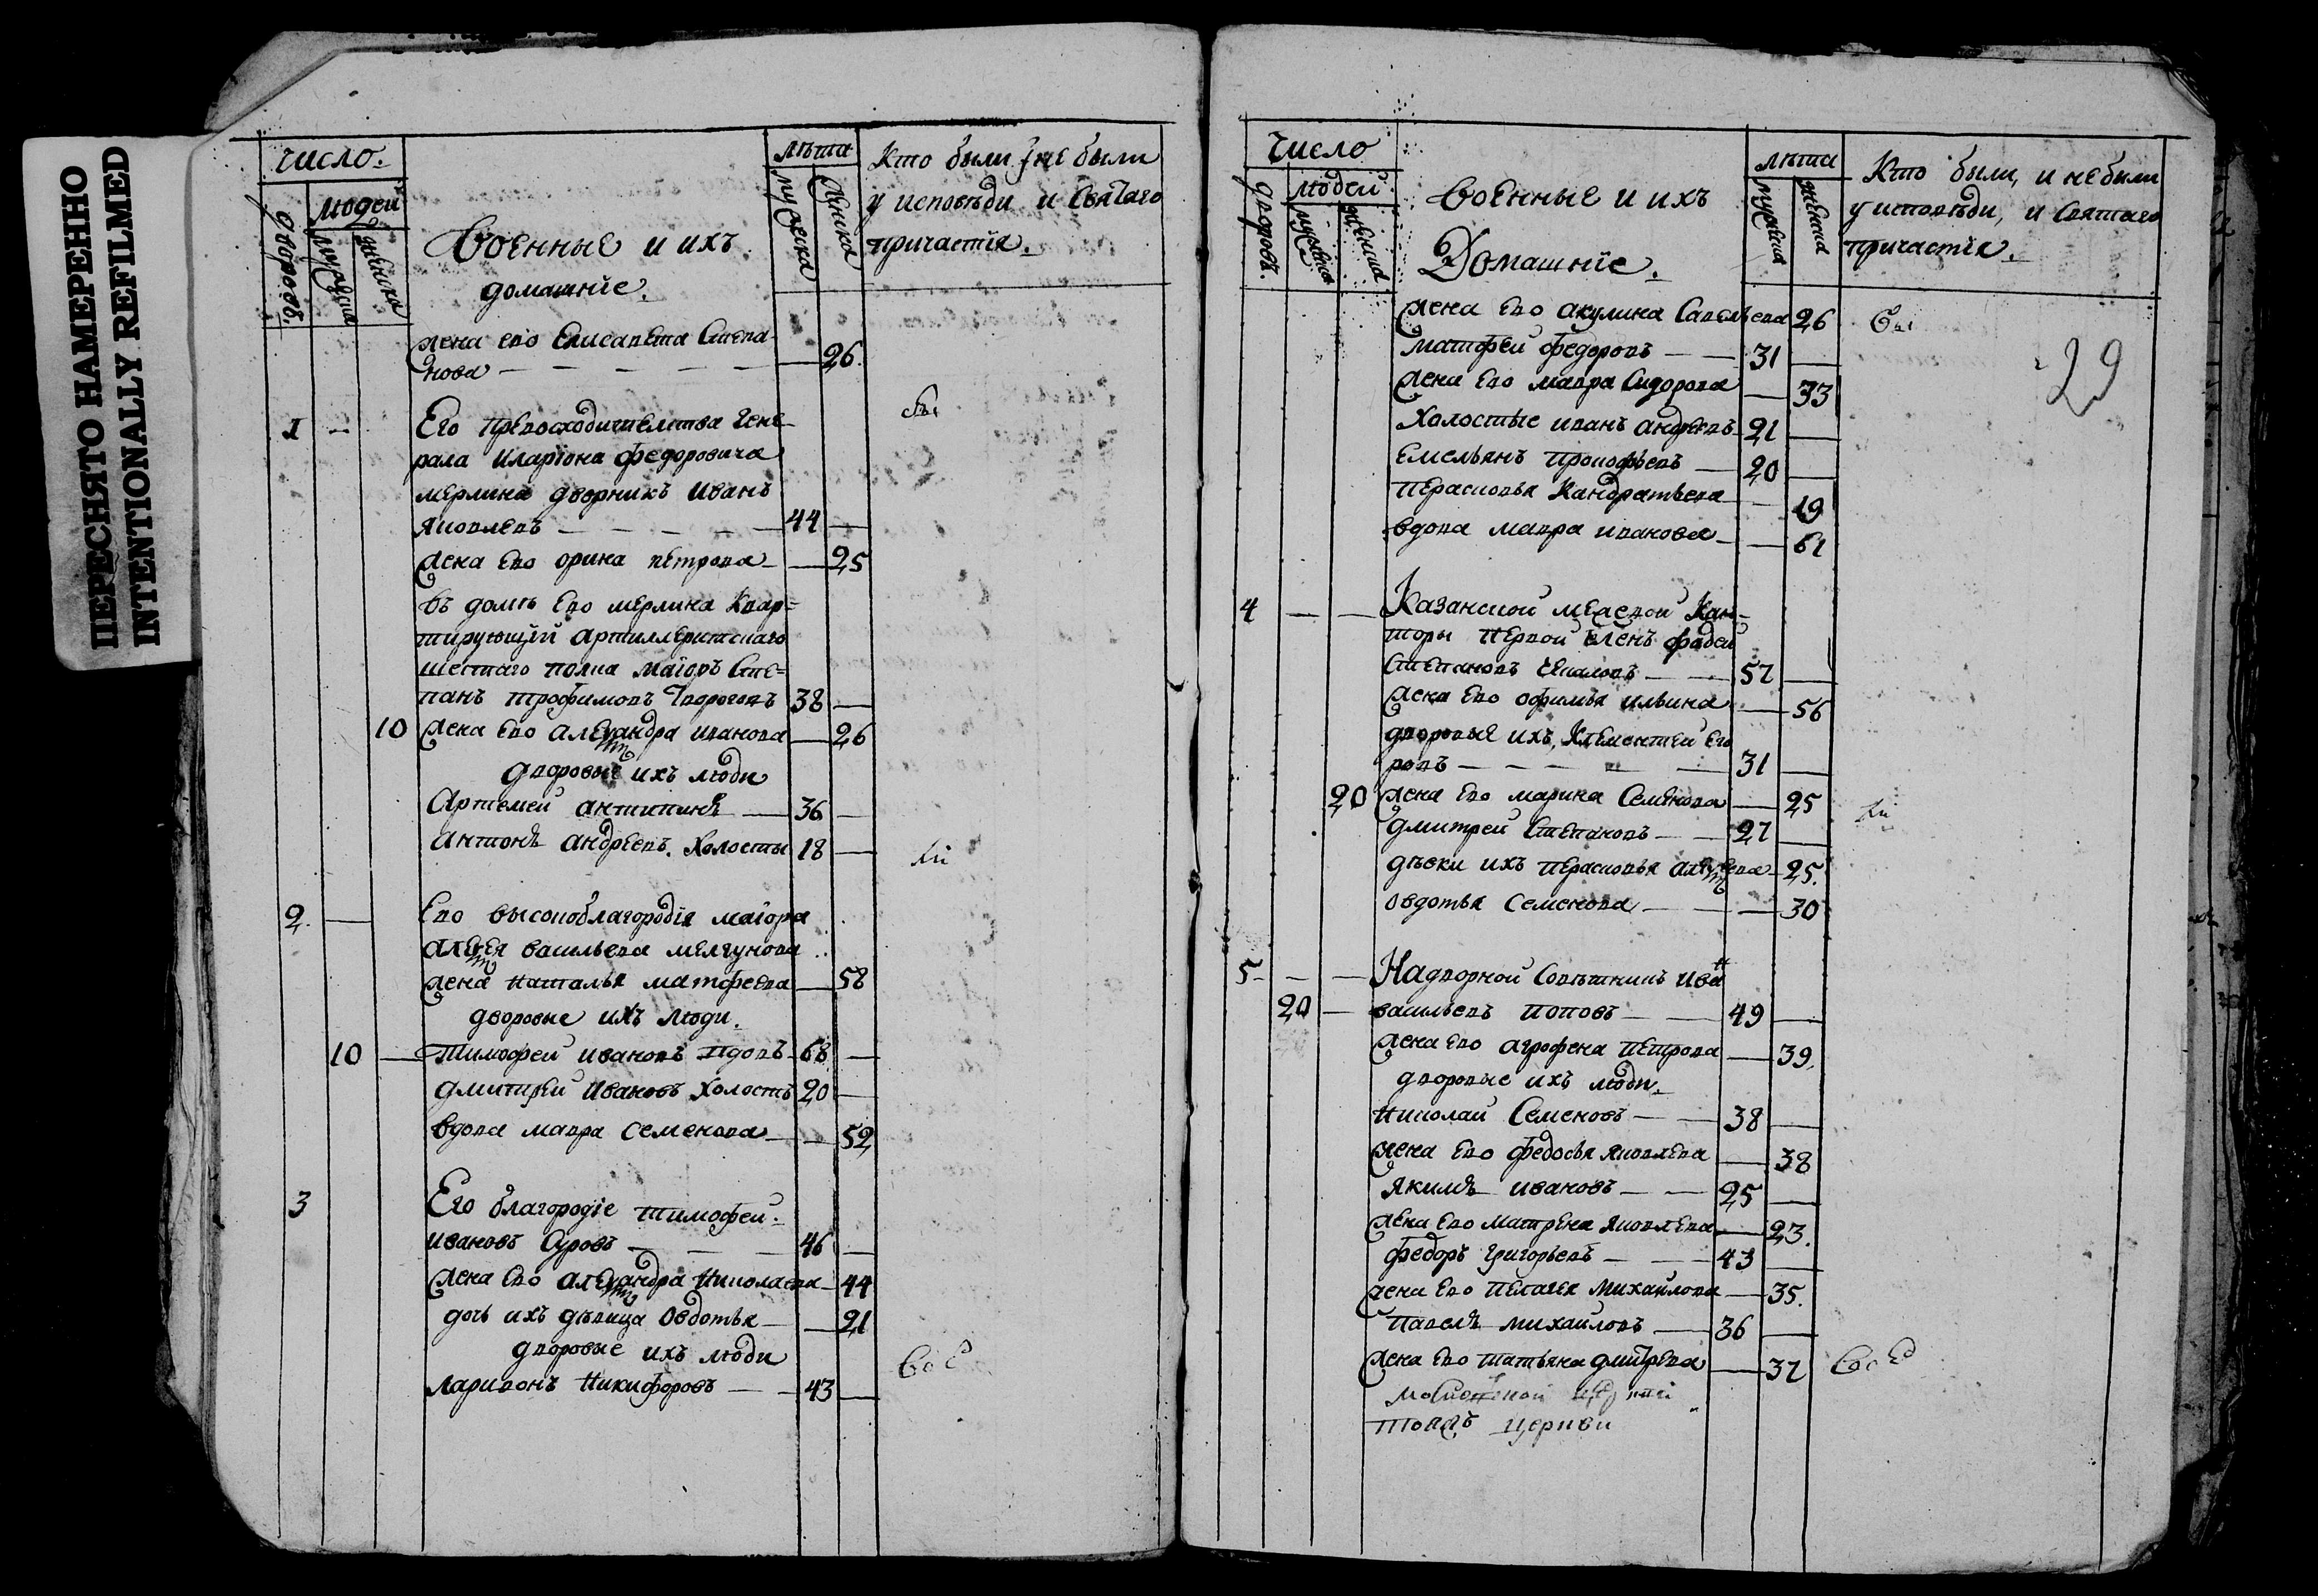 ПЕРЕСНЯТО НАМЕРЕННО
INTENTIONALLY REFILMED
число.
дворовъ.
людей
мужеска
женска
военные и ихъ
домашнїе.
лѣта
мужеска
женска
Кто были и не были
у исповѣди и святаго
причастїя.
жена ево Елисавета Степа-
нова — 26.
1 — Его превосходительства гене-
рала Иларїона Федоровича
мерлина дворникъ Иванъ
Яковлевъ — 44 —
жена ево орина петрова — 25
въ домѣ ево мерлина квар=
тирующїй артиллерискаго
шестаго полка маїоръ Сте=
панъ трофимовъ 38 —
10 жена ево алеѯандра иванова — 26
дворовые ихъ люди
Артемей антипинъ — 36 —
антонъ андреевъ. холосты 18 —
2. — Ево высокоблагородїя маїора
алеѯея васильева мелгунова
жена наталья матфеева — 58
дворовые ихъ люди.
10 — тимофей ивановъ вдовъ 68 —
дмитрей ивановъ холостъ 20 —
вдова мавра семенова — 52
3 Его благородїе тимофей
ивановъ — 46 —
жена ево алеѯандра николаева — 44
дочь ихъ дѣвица овдотья — 21
дворовые ихъ люди
ларивонъ никифоровъ — 43 —
число
дворовъ.
людей
мужеска
женска
военные и ихъ
Домашнїе.
лѣта
мужеска
женска
Кто были, и не были
у исповѣди, и святаго
причастїя.
29
жена ево акулина Савельева 26
матфей федоровъ — 31 —
жена ево мавра Сидорова — 33
холостые иванъ андреевъ 21 —
емельянъ прокофьевъ — 20 —
перасковья кандратьева — 19
вдова мавра иванова — 61
4 — — Казанской межевой кан-
торы первой членъ фадей
Степановъ — 57 —
жена ево офимья ильина — 56
дворовые ихъ, климентей его
ровъ — 31 —
20 жена ево марина Семенова — 25
дмитрей Степановъ — 27 —
дѣвки ихъ перасковья алеѯеева — 25.
овдотья семенова — 30
5 — — Надворной Совѣтникъ Иванъ
20 — васильевъ поповъ — 49 —
жена ево агрофена петрова — 39.
дворовые ихъ люди.
николай Семеновъ — 38 —
жена ево федосья яковлева — 38
якимъ ивановъ — 25 —
жена ево матрена яковлева — 23.
федоръ григорьевъ — 43 —
жена ево пелагея михайлова — 35.
павелъ михайловъ — 36 —
жена ево татьяна дмитрева — 37
церкви